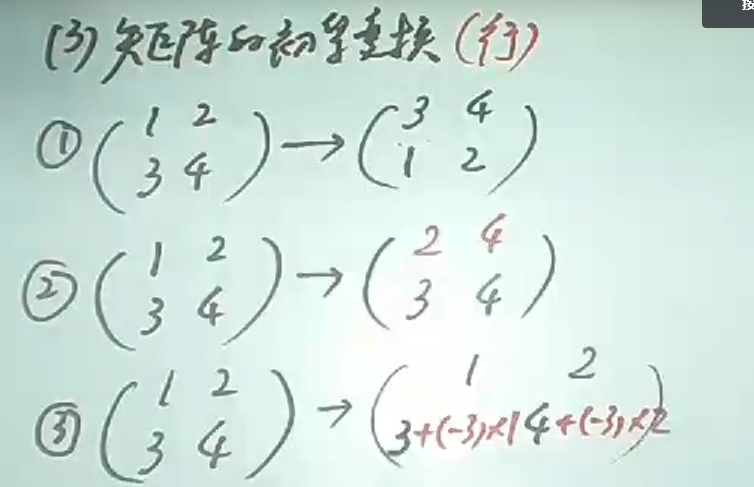 (3) 矩阵的初等变换 (行)
① ( 1 2 ) → ( 3 4 )
( 3 4 ) ( 1 2 )
② ( 1 2 ) → ( 2 4 )
( 3 4 ) ( 3 4 )
③ ( 1 2 ) → ( 1 2 )
( 3 4 ) ( 3+(-3)×1 4+(-3)×2 )